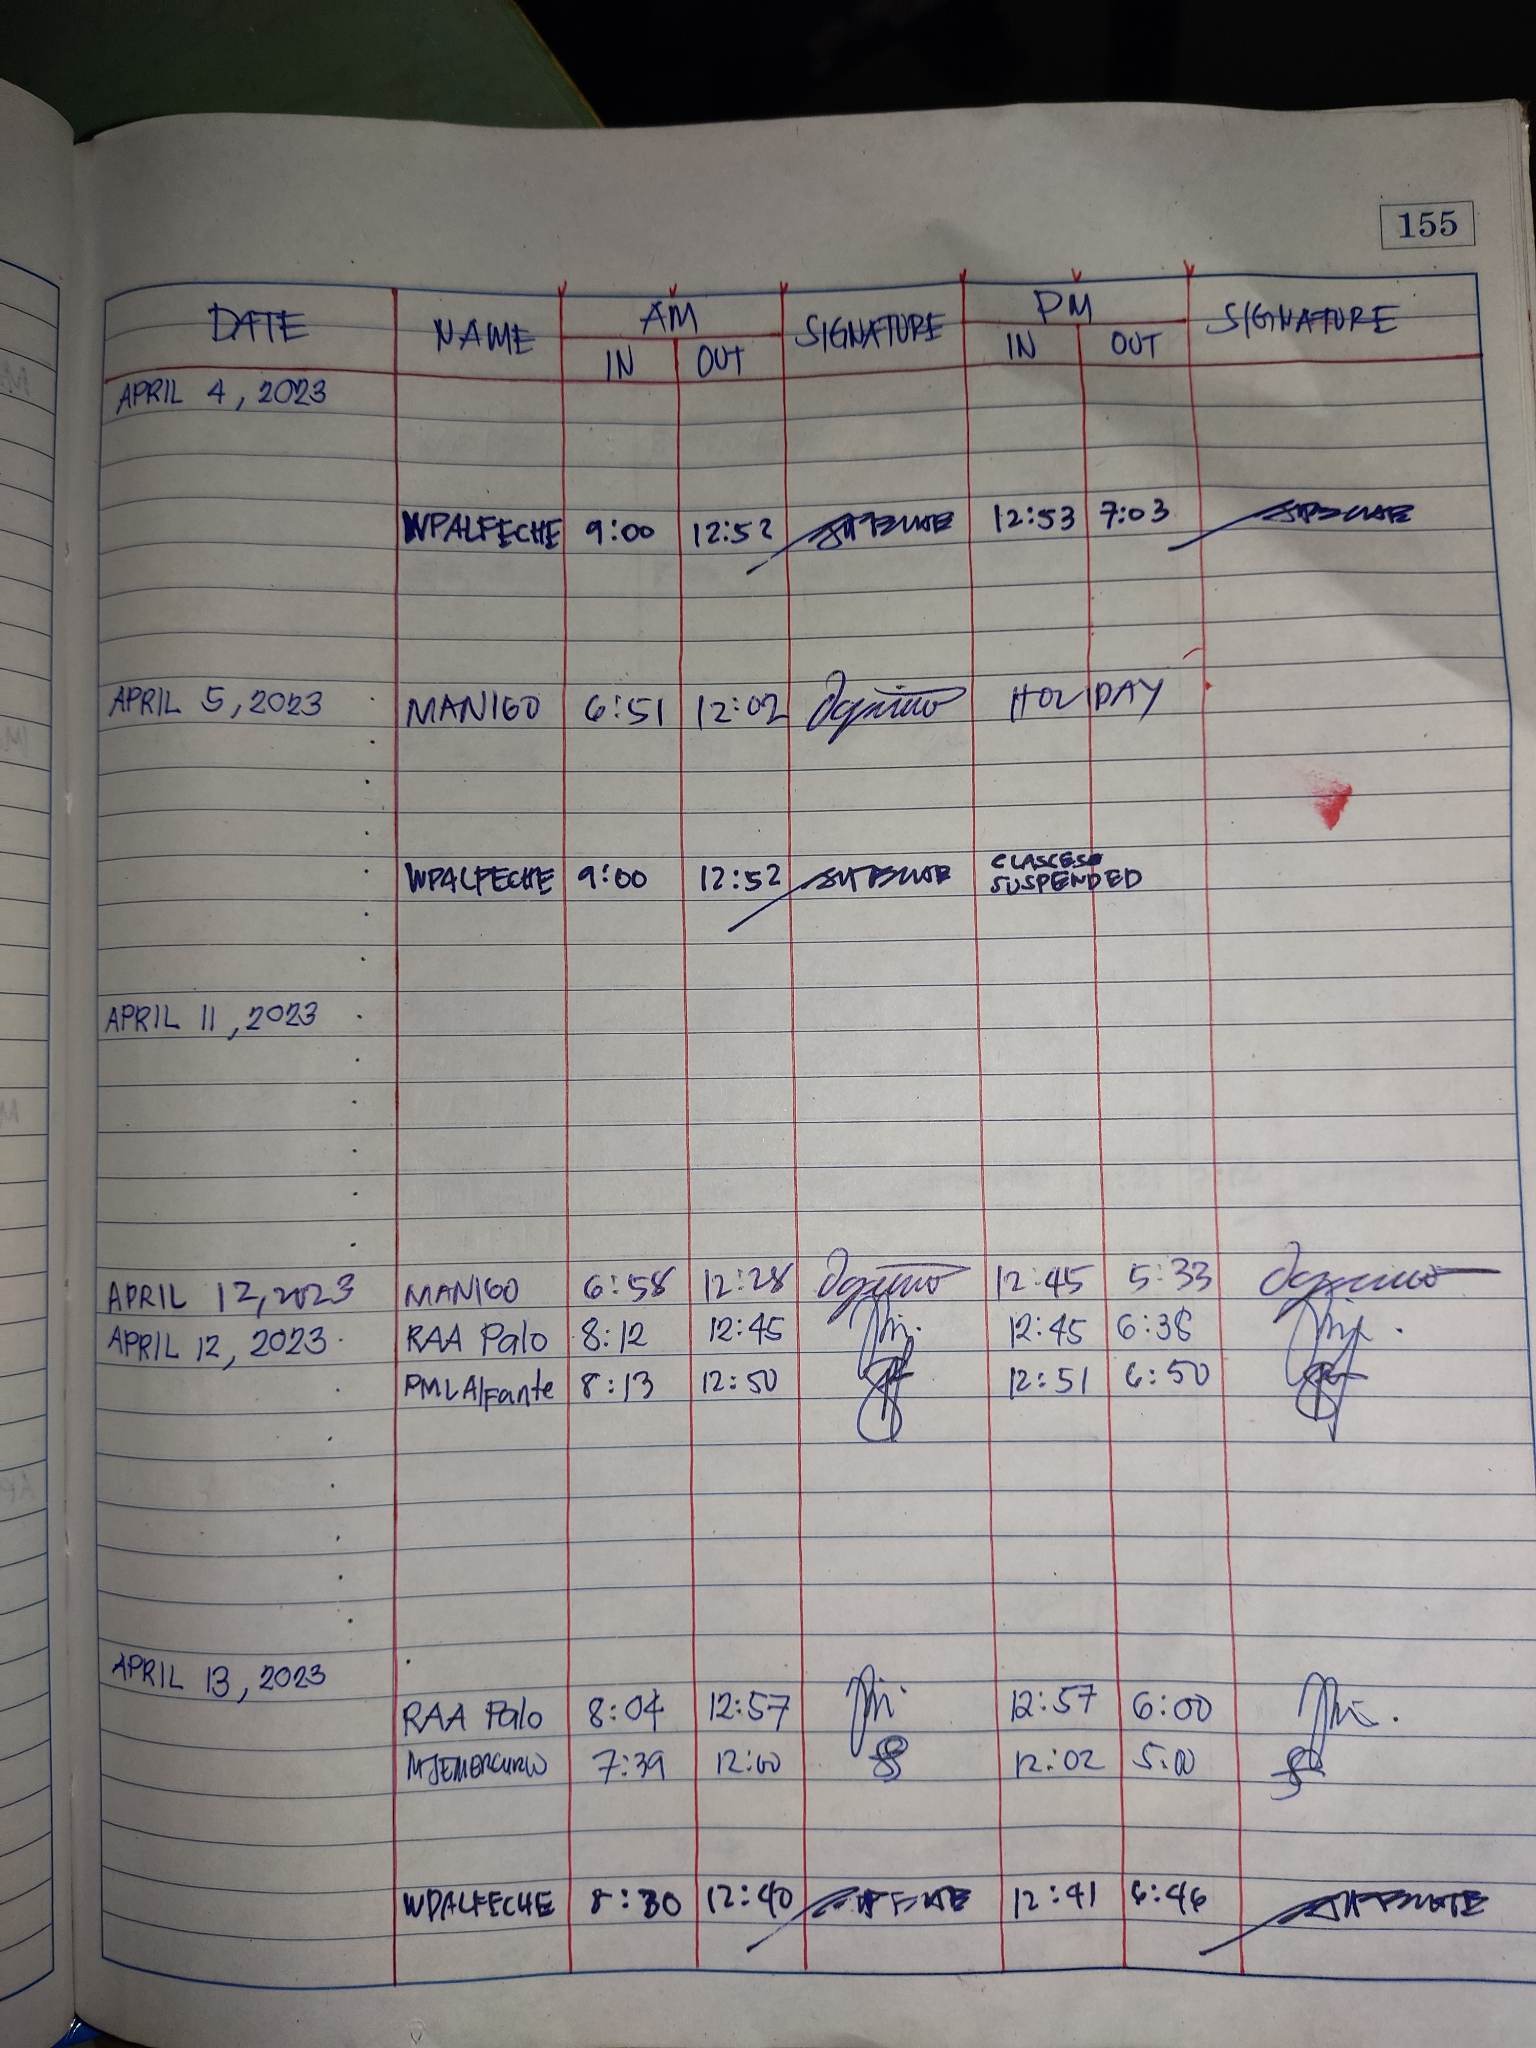 155
DATE NAME AM SIGNATURE PM SIGNATURE
IN OUT IN OUT
APRIL 4, 2023
WPALFECHE 9:00 12:52 12:53 7:03
APRIL 5, 2023 MANIGO 6:51 12:02 HOLIDAY
WPALFECHE 9:00 12:52 CLASCES
SUSPENDED
APRIL 11, 2023
APRIL 12, 2023 MANIGO 6:58 12:28 12:45 5:33
APRIL 12, 2023 RAA Palo 8:12 12:45 12:45 6:38
PMLAlfante 8:13 12:50 12:51 6:50
APRIL 13, 2023
RAA Palo 8:04 12:57 12:57 6:00
MJEMERCURIO 7:39 12:00 12:02 5:00
WPALFECHE 8:30 12:40 12:41 6:46